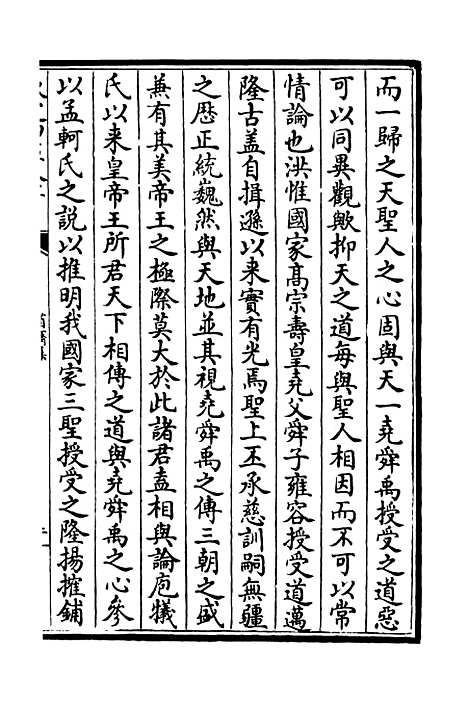 而一歸之天聖人之心固與天一堯舜禹授受之道惡
可以同異觀歟抑天之道每與聖人相因而不可以常
情論也洪惟國家髙宗壽皇堯父舜子雍容授受道邁
隆古盖自揖遜以来實有光焉聖上丕承慈訓嗣無疆
之歴正統巍然與天地並其視堯舜禹之傳三朝之盛
兼有其美帝王之極際莫大於此諸君盍相與論庖犧
氏以来皇帝王所君天下相傳之道與堯舜禹之心參
以孟軻氏之説以推明我國家三聖授受之隆揚搉鋪